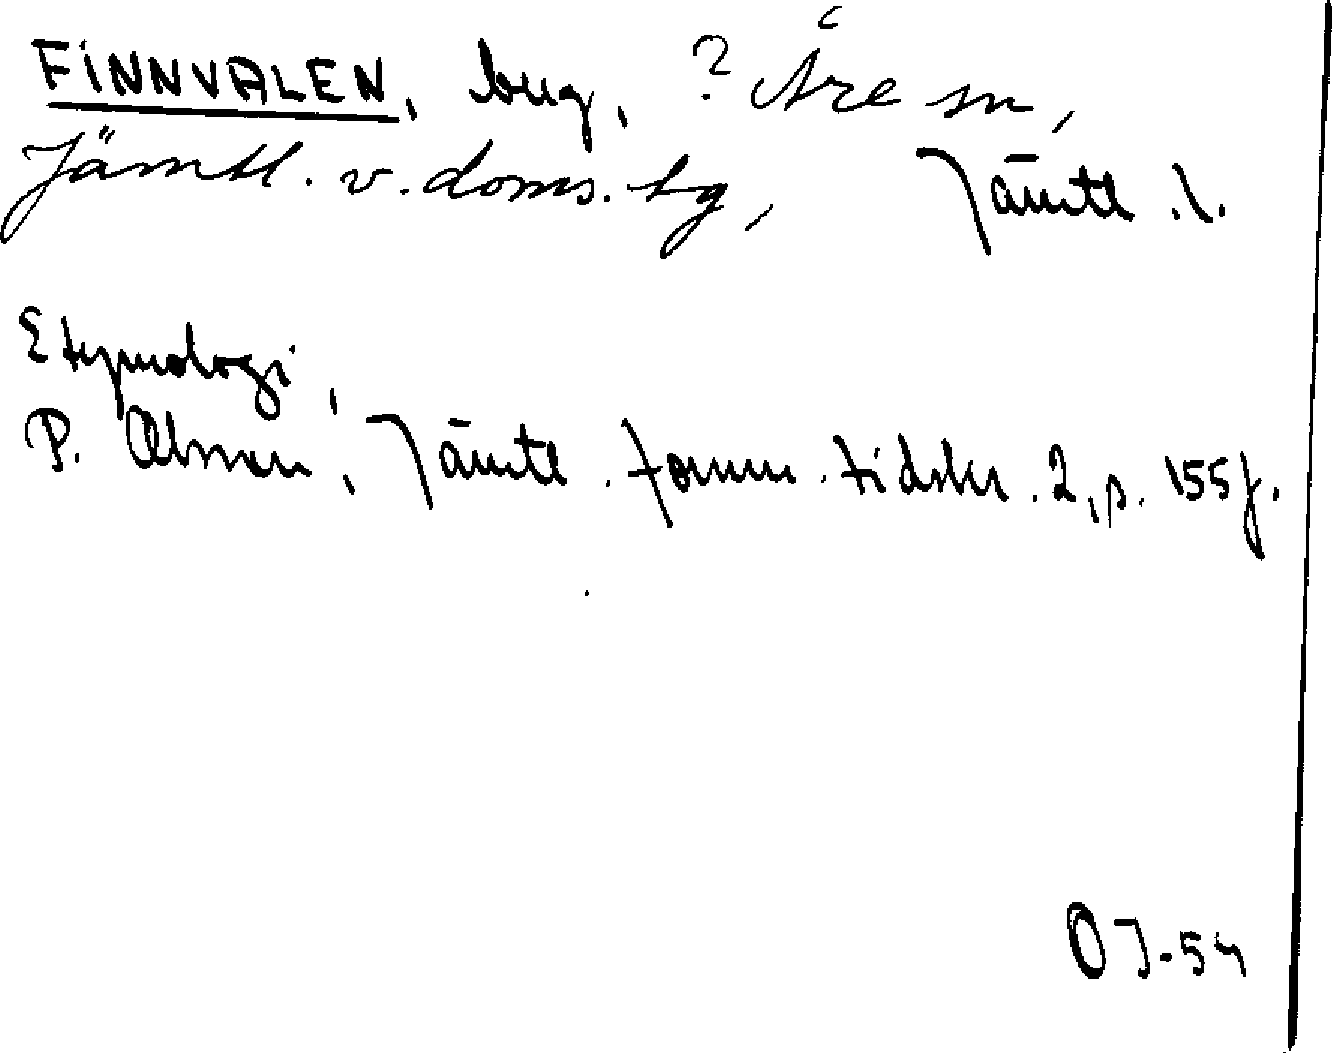 FINNVALEN, byg, ? Åre sn,
Jämtl. v. doms. tg, Jämtl. l.
Etymologi,
P. Olsson, Jämtl. fornm. tidskr. 2, p. 155 f.
OJ-54